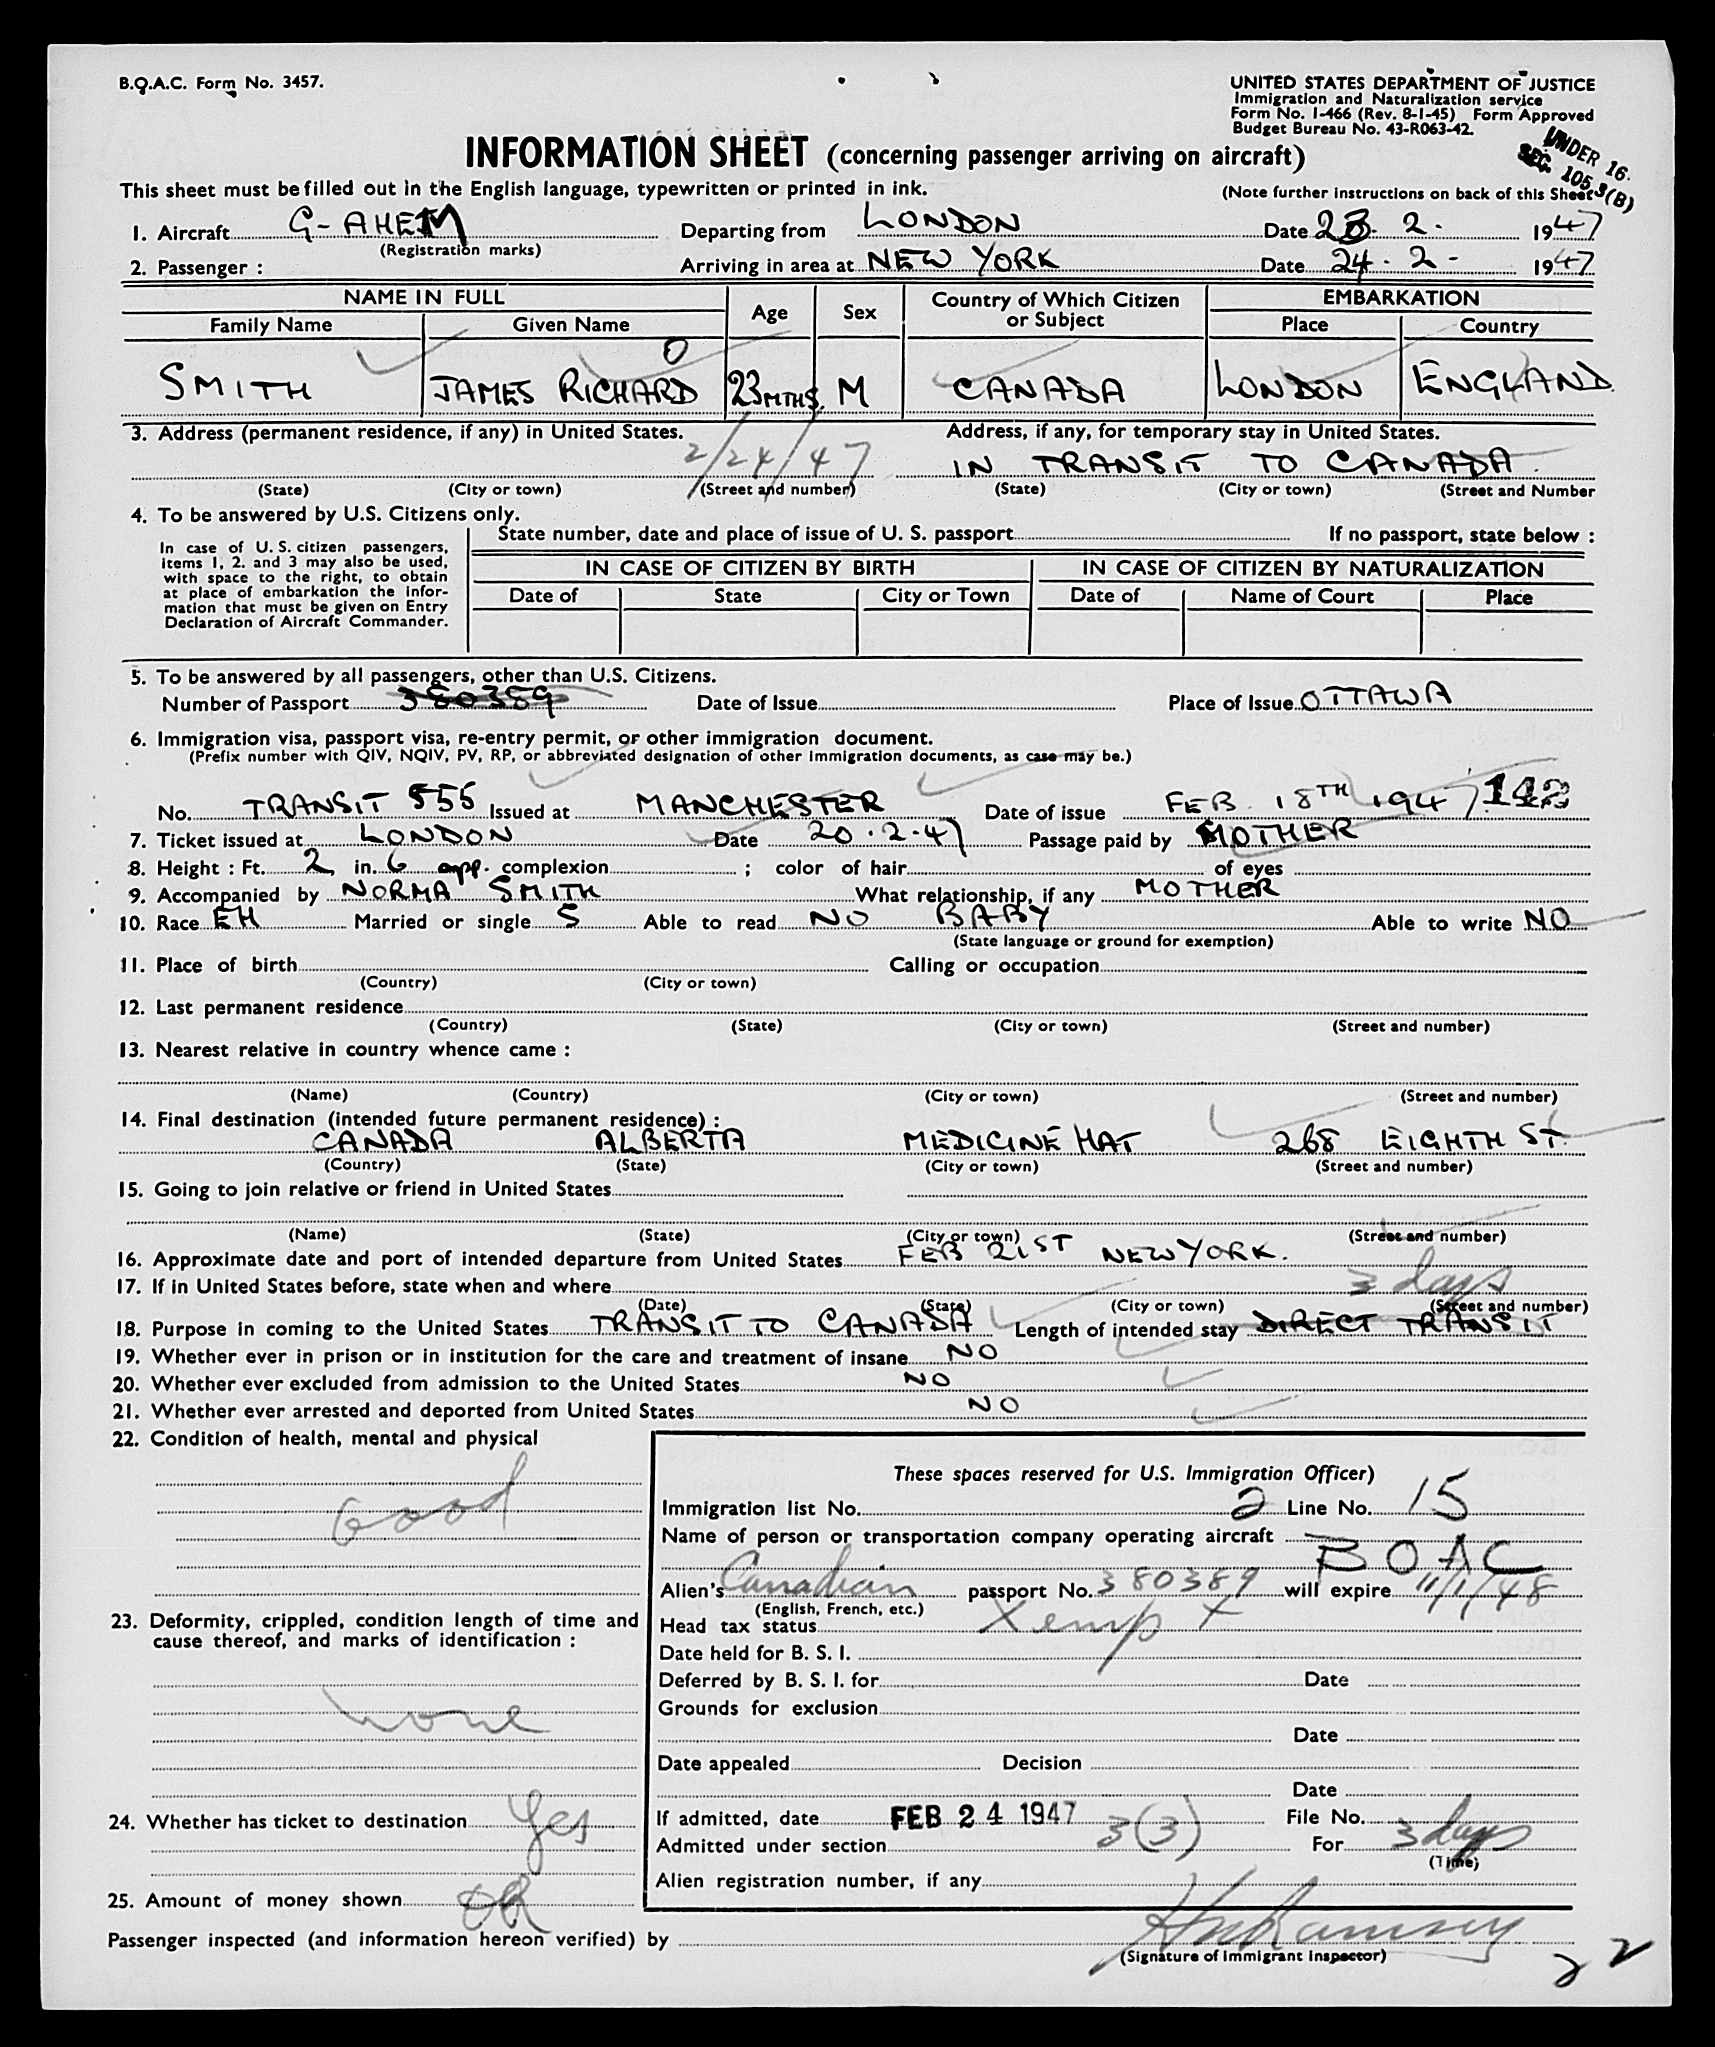 B.O.A.C. Form No. 3457.
UNITED STATES DEPARTMENT OF JUSTICE
Immigration and Naturalization service
Form No. I-466 (Rev. 8-1-45) Form Approved
Budget Bureau No. 43-R063-42.
UNDER 16.
SEC. 105.3(B)
INFORMATION SHEET (concerning passenger arriving on aircraft)
This sheet must be filled out in the English language, typewritten or printed in ink.
(Note further instructions on back of this Sheet
1. Aircraft G-AHEM Departing from LONDON Date 23. 2. 1947
(Registration marks)
2. Passenger : Arriving in area at NEW YORK Date 24. 2. 1947
NAME IN FULL Age Sex Country of Which Citizen or Subject EMBARKATION
Family Name Given Name Place Country
0
SMITH JAMES RICHARD 23 MTHS. M CANADA LONDON ENGLAND
3. Address (permanent residence, if any) in United States. Address, if any, for temporary stay in United States.
2/24/47 IN TRANSIT TO CANADA.
(State) (City or town) (Street and number) (State) (City or town) (Street and Number
4. To be answered by U.S. Citizens only.
State number, date and place of issue of U. S. passport If no passport, state below :
In case of U. S. citizen passengers,
items 1, 2. and 3 may also be used,
with space to the right, to obtain
at place of embarkation the infor-
mation that must be given on Entry
Declaration of Aircraft Commander.
IN CASE OF CITIZEN BY BIRTH IN CASE OF CITIZEN BY NATURALIZATION
Date of State City or Town Date of Name of Court Place
5. To be answered by all passengers, other than U.S. Citizens.
Number of Passport 380389 Date of Issue Place of Issue OTTAWA
6. Immigration visa, passport visa, re-entry permit, or other immigration document.
(Prefix number with QIV, NQIV, PV, RP, or abbreviated designation of other immigration documents, as case may be.)
No. TRANSIT 555 Issued at MANCHESTER Date of issue FEB 18TH 1947 142
7. Ticket issued at LONDON Date 20.2.47 Passage paid by MOTHER
8. Height : Ft. 2 in. 6 app. complexion ; color of hair of eyes
9. Accompanied by NORMA SMITH What relationship, if any MOTHER
10. Race EH Married or single S Able to read NO BABY Able to write NO
(State language or ground for exemption)
11. Place of birth Calling or occupation
(Country) (City or town)
12. Last permanent residence
(Country) (State) (City or town) (Street and number)
13. Nearest relative in country whence came :
(Name) (Country) (City or town) (Street and number)
14. Final destination (intended future permanent residence) :
CANADA ALBERTA MEDICINE HAT 268 EIGHTH ST.
(Country) (State) (City or town) (Street and number)
15. Going to join relative or friend in United States
(Name) (State) (City or town) (Street and number)
16. Approximate date and port of intended departure from United States FEB 21ST NEW YORK.
17. If in United States before, state when and where 3 days
(Date) (State) (City or town) (Street and number)
18. Purpose in coming to the United States TRANSIT TO CANADA Length of intended stay DIRECT TRANSIT
19. Whether ever in prison or in institution for the care and treatment of insane NO
20. Whether ever excluded from admission to the United States NO
21. Whether ever arrested and deported from United States NO
22. Condition of health, mental and physical
Good
23. Deformity, crippled, condition length of time and
cause thereof, and marks of identification :
none
24. Whether has ticket to destination Yes
25. Amount of money shown OK
These spaces reserved for U.S. Immigration Officer)
Immigration list No. 2 Line No. 15
Name of person or transportation company operating aircraft
BOAC
Alien's Canadian passport No. 380389 will expire 11/1/48
(English, French, etc.)
Head tax status Xempt
Date held for B. S. I.
Deferred by B. S. I. for Date
Grounds for exclusion
Date
Date appealed Decision
Date
If admitted, date FEB 24 1947 File No.
Admitted under section 3(3) For 3 days
(Time)
Alien registration number, if any
Passenger inspected (and information hereon verified) by
(Signature of Immigrant Inspector)
22